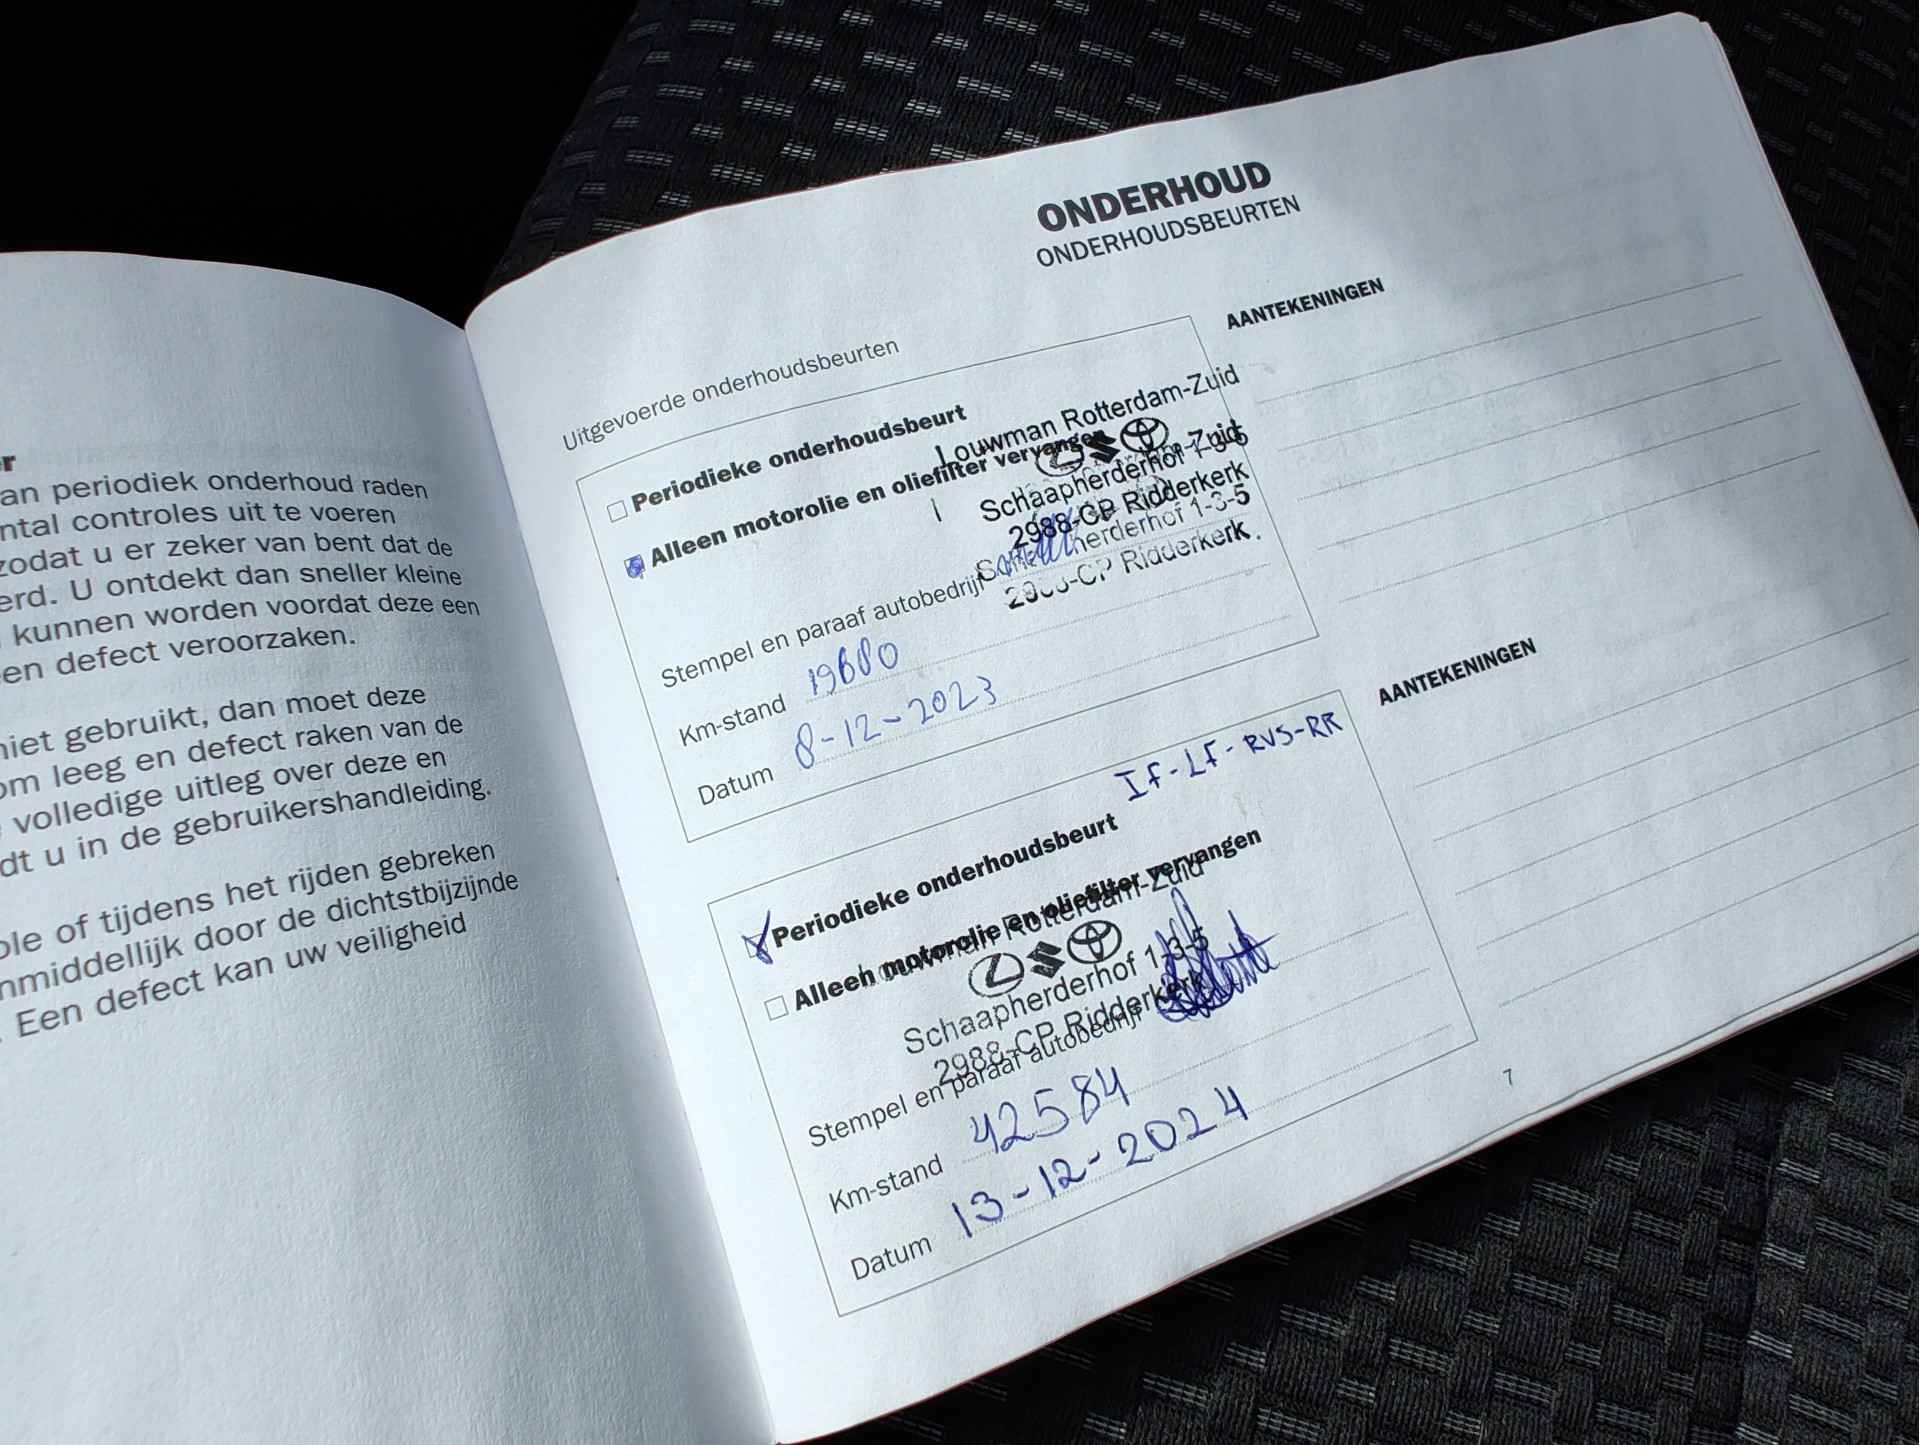 r
an periodiek onderhoud raden
ntal controles uit te voeren
zodat u er zeker van bent dat de
erd. U ontdekt dan sneller kleine
kunnen worden voordat deze een
en defect veroorzaken.
niet gebruikt, dan moet deze
om leeg en defect raken van de
volledige uitleg over deze en
dt u in de gebruikershandleiding.
ole of tijdens het rijden gebreken
nmiddellijk door de dichtstbijzijnde
. Een defect kan uw veiligheid
ONDERHOUD
ONDERHOUDSBEURTEN
Uitgevoerde onderhoudsbeurten
AANTEKENINGEN
Periodieke onderhoudsbeurt
Alleen motorolie en oliefilter vervangen
Louwman Rotterdam-Zuid
Schaapherderhof 1-3-5
2988-CP Ridderkerk
Schaapherderhof 1-3-5
2988-CP Ridderkerk.
Stempel en paraaf autobedrijf
Km-stand 19680
Datum 8-12-2023
AANTEKENINGEN
IF-LF-RVS-RR
Periodieke onderhoudsbeurt
Alleen motorolie en oliefilter vervangen
Louwman Rotterdam-Zuid
Schaapherderhof 1-3-5
2988-CP Ridderkerk
Stempel en paraaf autobedrijf
Km-stand 42584
Datum 13-12-2024
7